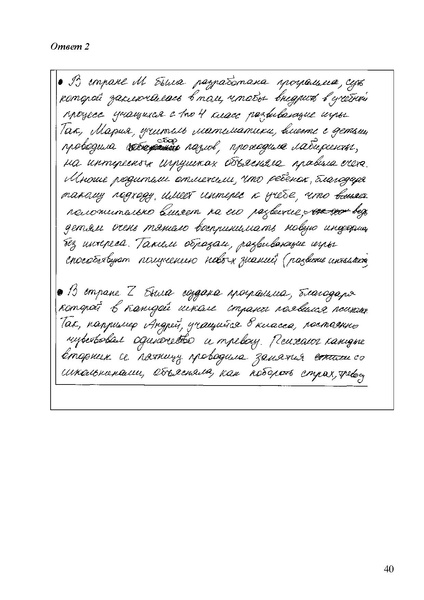 Ответ 2
• В стране М была разработана программа, суть
которой заключалась в том, чтобы внедрить в учебный
процесс учащихся с 1 по 4 класс развивающие игры.
Так, Мария, учитель математики, вместе с детьми
проводила сбор пазлов, проходила лабиринты,
на интересных игрушках объясняла правила счета.
Многие родители отмечали, что ребёнок, благодаря
такому подходу, имеет интерес к учёбе, что
положительно влияет на его развитие, ведь
детям очень тяжело воспринимать новую информац
без интереса. Таким образом, развивающие игры
способствуют получению новых знаний (развитие
• В стране Z была создана программа, благодаря
которой в каждой школе страны появился психолог
Так, например Андрей, учащийся 8 класса, постоянно
чувствовал одиночество и тревогу. Психолог каждые
вторник и пятницу проводила занятия со
школьниками, объясняла, как побороть страх, тревогу
40